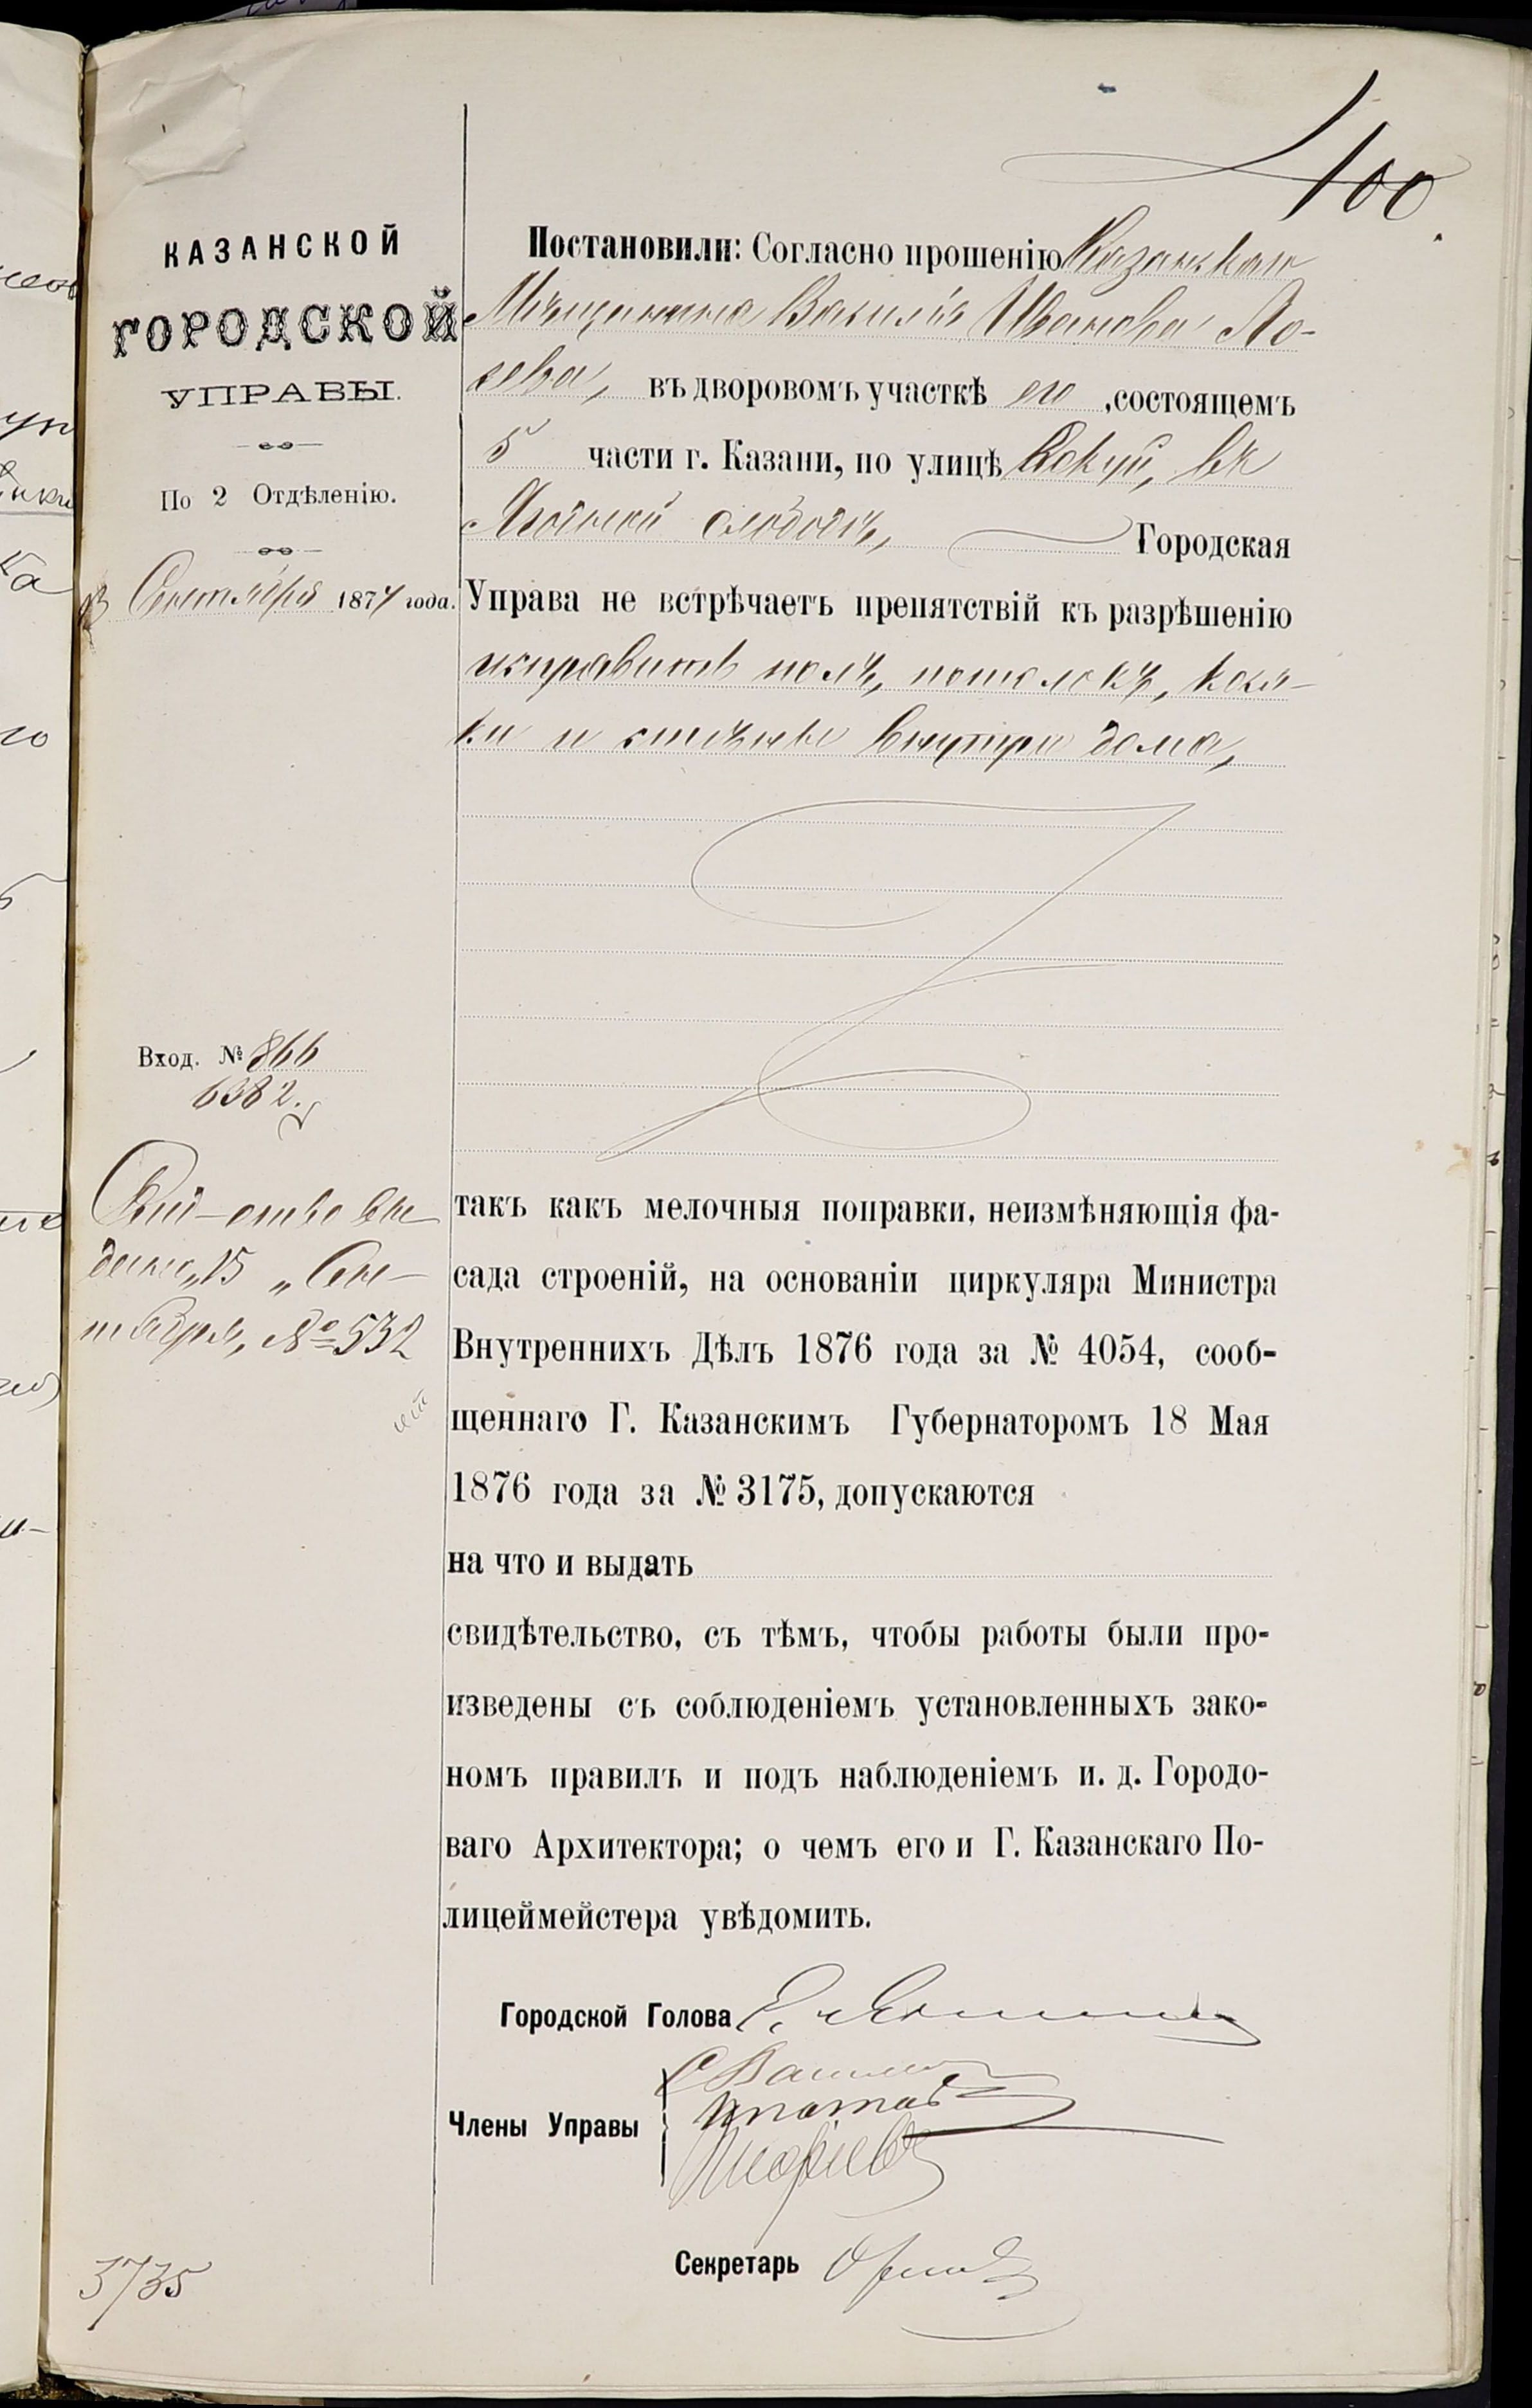 100
КАЗАНСКОЙ
ГОРОДСКОЙ
УПРАВЫ.
По 2 Отдѣленію.
13 Сентября 1877 года.
Вход. № 866
6382.
Свид-ство вы-
дано „15„ Сен-
тября, № 532
3735
Постановили: Согласно прошенію Казанскаго
Мѣщанина Василія Иванова Ло-
сева, въ дворовомъ участкѣ его, состоящемъ
5 части г. Казани, по улицѣ Кокуй, въ
Ягодной слободѣ, Городская
Управа не встрѣчаетъ препятствій къ разрѣшенію
исправить полъ, потолокъ, кося-
ки и стѣны внутри дома,
такъ какъ мелочныя поправки, неизмѣняющія фа-
сада строеній, на основаніи циркуляра Министра
Внутреннихъ Дѣлъ 1876 года за № 4054, сооб-
щеннаго Г. Казанскимъ Губернаторомъ 18 Мая
1876 года за № 3175, допускаются
на что и выдать
свидѣтельство, съ тѣмъ, чтобы работы были про-
изведены съ соблюденіемъ установленныхъ зако-
номъ правилъ и подъ наблюденіемъ и. д. Городо-
ваго Архитектора; о чемъ его и Г. Казанскаго По-
лицеймейстера увѣдомить.
Городской Голова
Члены Управы
Секретарь